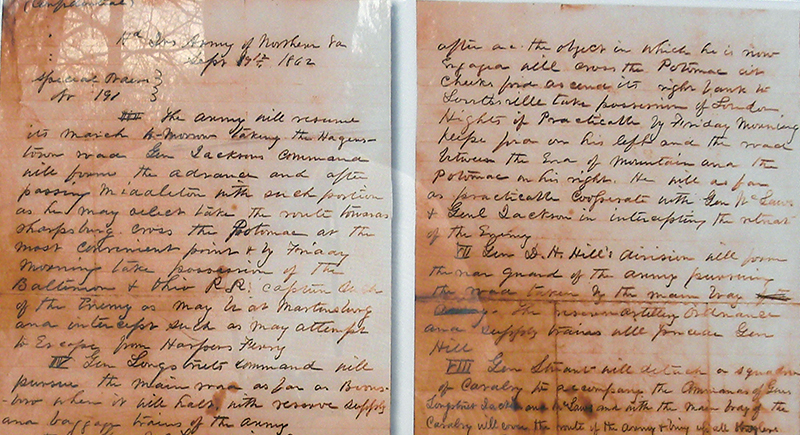 (Confidential)
Hd Qrs Army of Northern Va
Sept 9th 1862
Special Orders
No 191
III The Army will resume
its march to-morrow taking the Hagers-
town road Gen Jacksons Command
will form the advance and after
passing Middleton with such portion
as he may select take the route towards
Sharpsburg. Cross the Potomac at the
most convenient point & by Friday
Morning take possession of the
Baltimore & Ohio R.R; capture such
of the Enemy as may be at Martinsburg
and intercept such as may attempt
to Escape from Harpers Ferry
IV Gen Longstreets command will
pursue the main road as far as Boons-
-boro where it will halt, with reserve supply
and baggage trains of the army
after the object in which he is now
Engaged will cross the Potomac at
Cheeks ford ascend its right bank to
Lovettsville take possession of Loudon
Hights if Practicable by Friday Morning
ford on his left and the road
between the End of Mountain and the
Potomac on his right. He will as far
as practicable Cooperate with Gen McLaws
& Genl Jackson in intercepting the retreat
of the Enemy
VII Gen D. H. Hill's division will form
the rear guard of the army pursuing
the road taken by the main body
Army. The reserve artillery Ordnance
and supply trains will precede Gen
Hill
VIII Gen Stuart will detach a squadron
of Cavalry to accompany the Commands of Gens
Longstreet Jackson and McLaws and with the main body of the
Cavalry will cover the route of the Army & bring up all